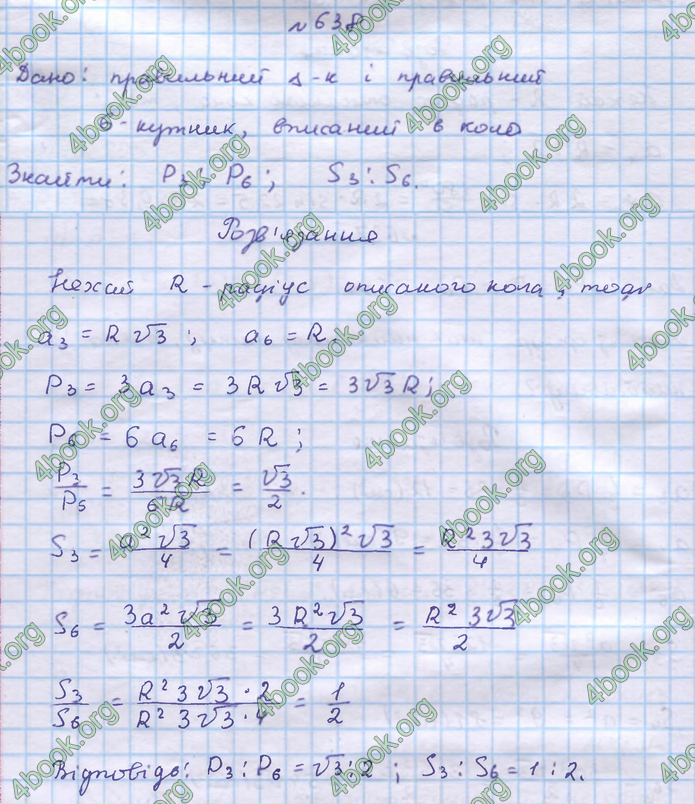 № 638
Дано: правильний Δ-к і правильний
6-кутник, вписаний в коло
Знайти: P₃ : P₆; S₃ : S₆.
Розв'язання
Нехай R - радіус описаного кола, тоді
a₃ = R√3; a₆ = R.
P₃ = 3a₃ = 3R√3 = 3√3 R;
P₆ = 6a₆ = 6R;
P₃/P₅ = 3√3 R/6R = √3/2.
S₃ = a²√3/4 = (R√3)²√3/4 = R²3√3/4
S₆ = 3a²√3/2 = 3R²√3/2 = R²3√3/2
S₃/S₆ = R²3√3·2/R²3√3·4 = 1/2
Відповідь: P₃ : P₆ = √3 : 2; S₃ : S₆ = 1 : 2.
4book.org